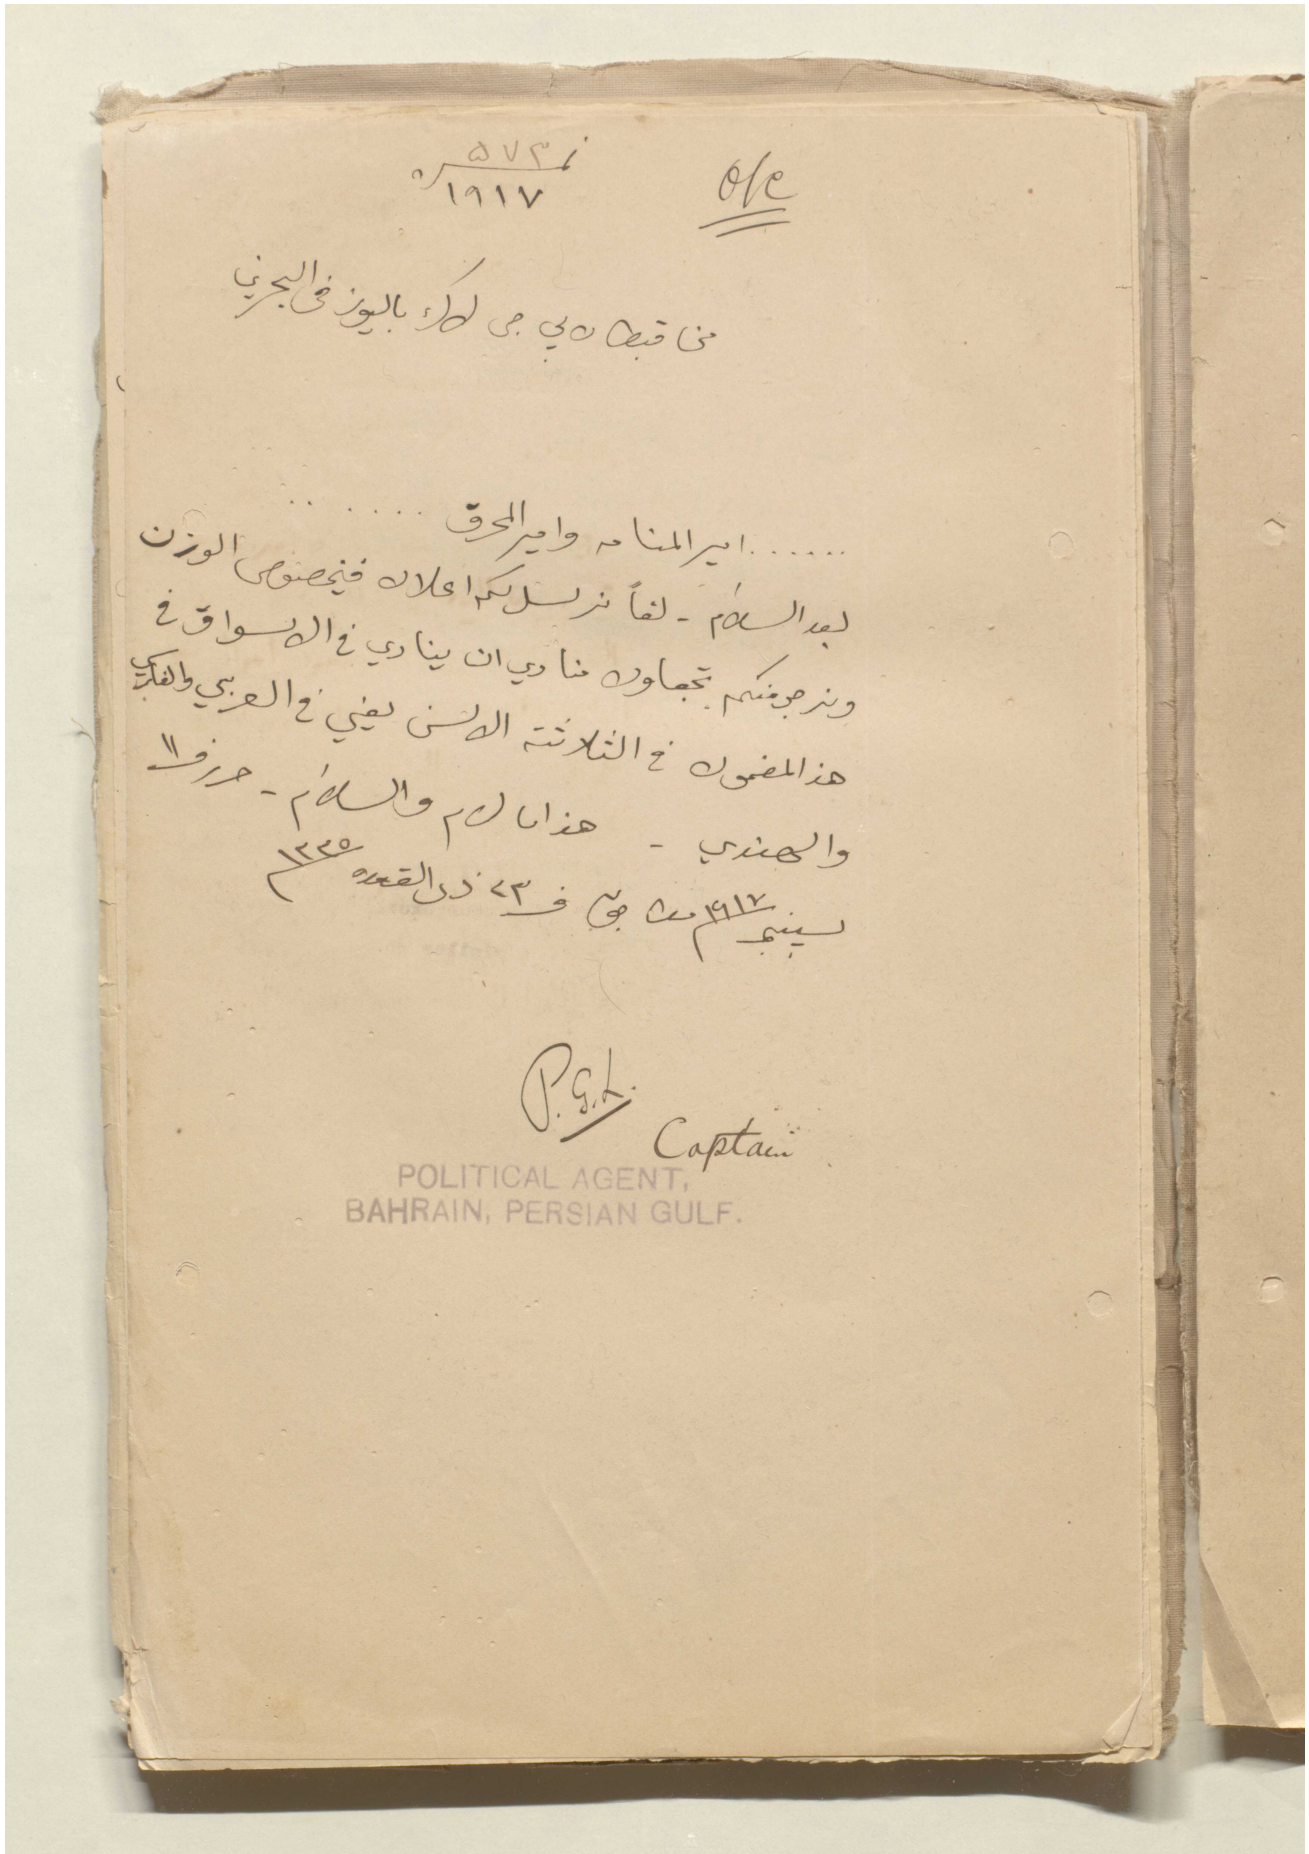 o/c
نمرة ٥٧٣
١٩١٧
من قبطان پي جي لاك باليوز في البحرين
......امير المنامه وامير المحرق ......
بعد السلام - لفاً نرسل لكم اعلان فيخصوص الوزن
ونرجو منكم تجعلون منادي ان ينادي في الاسواق في
هذالمضمون في الثلاثته الالسن يعني في العربي والفارسي
والهندي - هذا ما لزم والسلام - حرر في ١١
سپتمبر ١٩١٧م ٢٣ ذي القعده ١٣٣٥
P.G.L.
Captain
POLITICAL AGENT,
BAHRAIN, PERSIAN GULF.